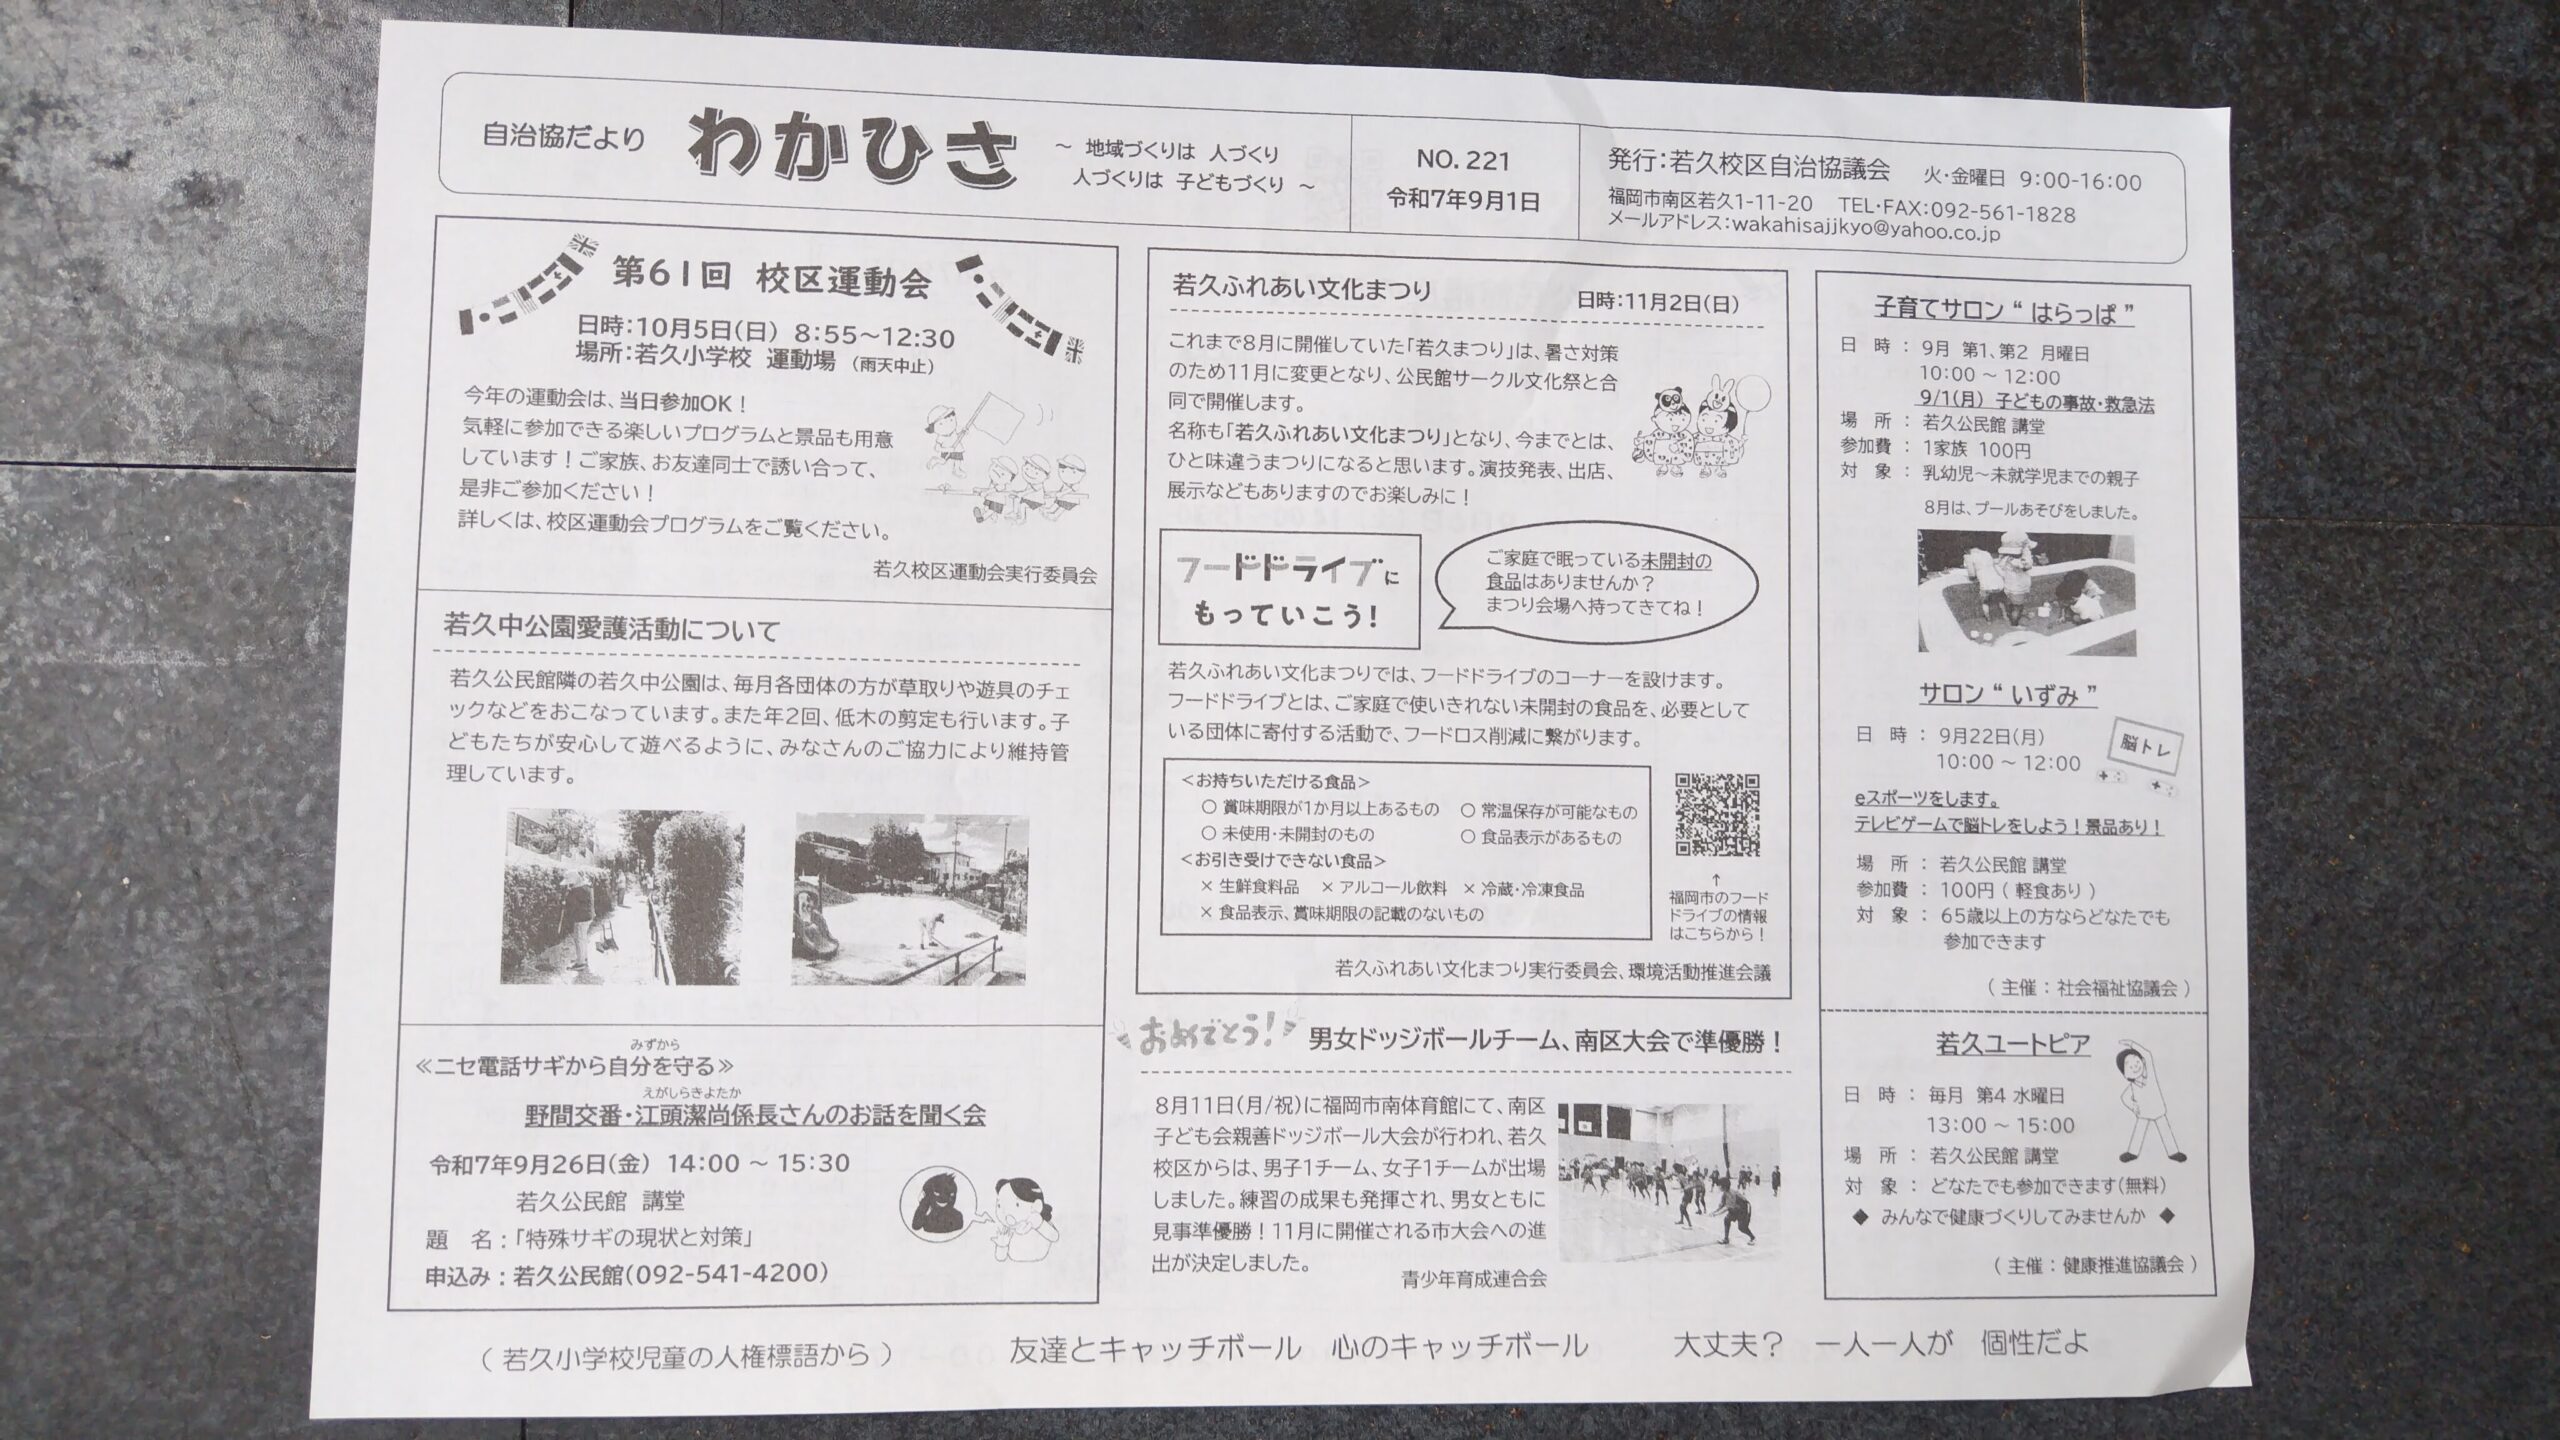 自治協だより
わかひさ
～ 地域づくりは 人づくり
人づくりは 子どもづくり ～
NO. 221
令和7年9月1日
発行：若久校区自治協議会 火・金曜日 9:00-16:00
福岡市南区若久1-11-20 TEL・FAX：092-561-1828
メールアドレス：wakahisajjkyo@yahoo.co.jp
第61回 校区運動会
日時：10月5日(日) 8:55～12:30
場所：若久小学校 運動場 （雨天中止）
今年の運動会は、当日参加OK！
気軽に参加できる楽しいプログラムと景品も用意
しています！ご家族、お友達同士で誘い合って、
是非ご参加ください！
詳しくは、校区運動会プログラムをご覧ください。
若久校区運動会実行委員会
若久中公園愛護活動について
若久公民館隣の若久中公園は、毎月各団体の方が草取りや遊具のチェ
ックなどをおこなっています。また年2回、低木の剪定も行います。子
どもたちが安心して遊べるように、みなさんのご協力により維持管
理しています。
みずから
≪ニセ電話サギから自分を守る≫
えがしらきよたか
野間交番・江頭潔尚係長さんのお話を聞く会
令和7年9月26日(金) 14:00 ～ 15:30
若久公民館 講堂
題 名：「特殊サギの現状と対策」
申込み：若久公民館(092-541-4200)
若久ふれあい文化まつり 日時：11月2日(日)
これまで8月に開催していた「若久まつり」は、暑さ対策
のため11月に変更となり、公民館サークル文化祭と合
同で開催します。
名称も「若久ふれあい文化まつり」となり、今までとは、
ひと味違うまつりになると思います。演技発表、出店、
展示などもありますのでお楽しみに！
フードドライブに
もっていこう！
ご家庭で眠っている未開封の
食品はありませんか？
まつり会場へ持ってきてね！
若久ふれあい文化まつりでは、フードドライブのコーナーを設けます。
フードドライブとは、ご家庭で使いきれない未開封の食品を、必要として
いる団体に寄付する活動で、フードロス削減に繋がります。
＜お持ちいただける食品＞
○ 賞味期限が1か月以上あるもの ○ 常温保存が可能なもの
○ 未使用・未開封のもの ○ 食品表示があるもの
＜お引き受けできない食品＞
× 生鮮食料品 × アルコール飲料 × 冷蔵・冷凍食品
× 食品表示、賞味期限の記載のないもの
↑
福岡市のフード
ドライブの情報
はこちらから！
若久ふれあい文化まつり実行委員会、環境活動推進会議
おめでとう！ 男女ドッジボールチーム、南区大会で準優勝！
8月11日(月/祝)に福岡市南体育館にて、南区
子ども会親善ドッジボール大会が行われ、若久
校区からは、男子1チーム、女子1チームが出場
しました。練習の成果も発揮され、男女ともに
見事準優勝！11月に開催される市大会への進
出が決定しました。
青少年育成連合会
子育てサロン“ はらっぱ ”
日 時 ： 9月 第1、第2 月曜日
10:00 ～ 12:00
9/1(月) 子どもの事故・救急法
場 所 ： 若久公民館 講堂
参加費 ： 1家族 100円
対 象 ： 乳幼児～未就学児までの親子
8月は、プールあそびをしました。
サロン“ いずみ ”
日 時 ： 9月22日(月)
10:00 ～ 12:00
脳トレ
eスポーツをします。
テレビゲームで脳トレをしよう！景品あり！
場 所 ： 若久公民館 講堂
参加費 ： 100円（ 軽食あり ）
対 象 ： 65歳以上の方ならどなたでも
参加できます
（ 主催 ： 社会福祉協議会 ）
若久ユートピア
日 時 ： 毎月 第4 水曜日
13:00 ～ 15:00
場 所 ： 若久公民館 講堂
対 象 ： どなたでも参加できます(無料)
◆ みんなで健康づくりしてみませんか ◆
（ 主催 ： 健康推進協議会 ）
（ 若久小学校児童の人権標語から ） 友達とキャッチボール 心のキャッチボール 大丈夫？ 一人一人が 個性だよ